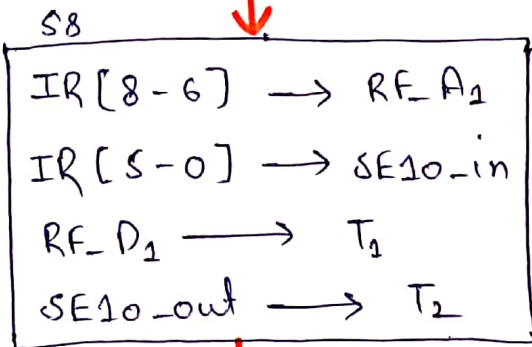 S8
IR[8-6] → RF_A1
IR[5-0] → SE10_in
RF_D1 → T1
SE10_out → T2